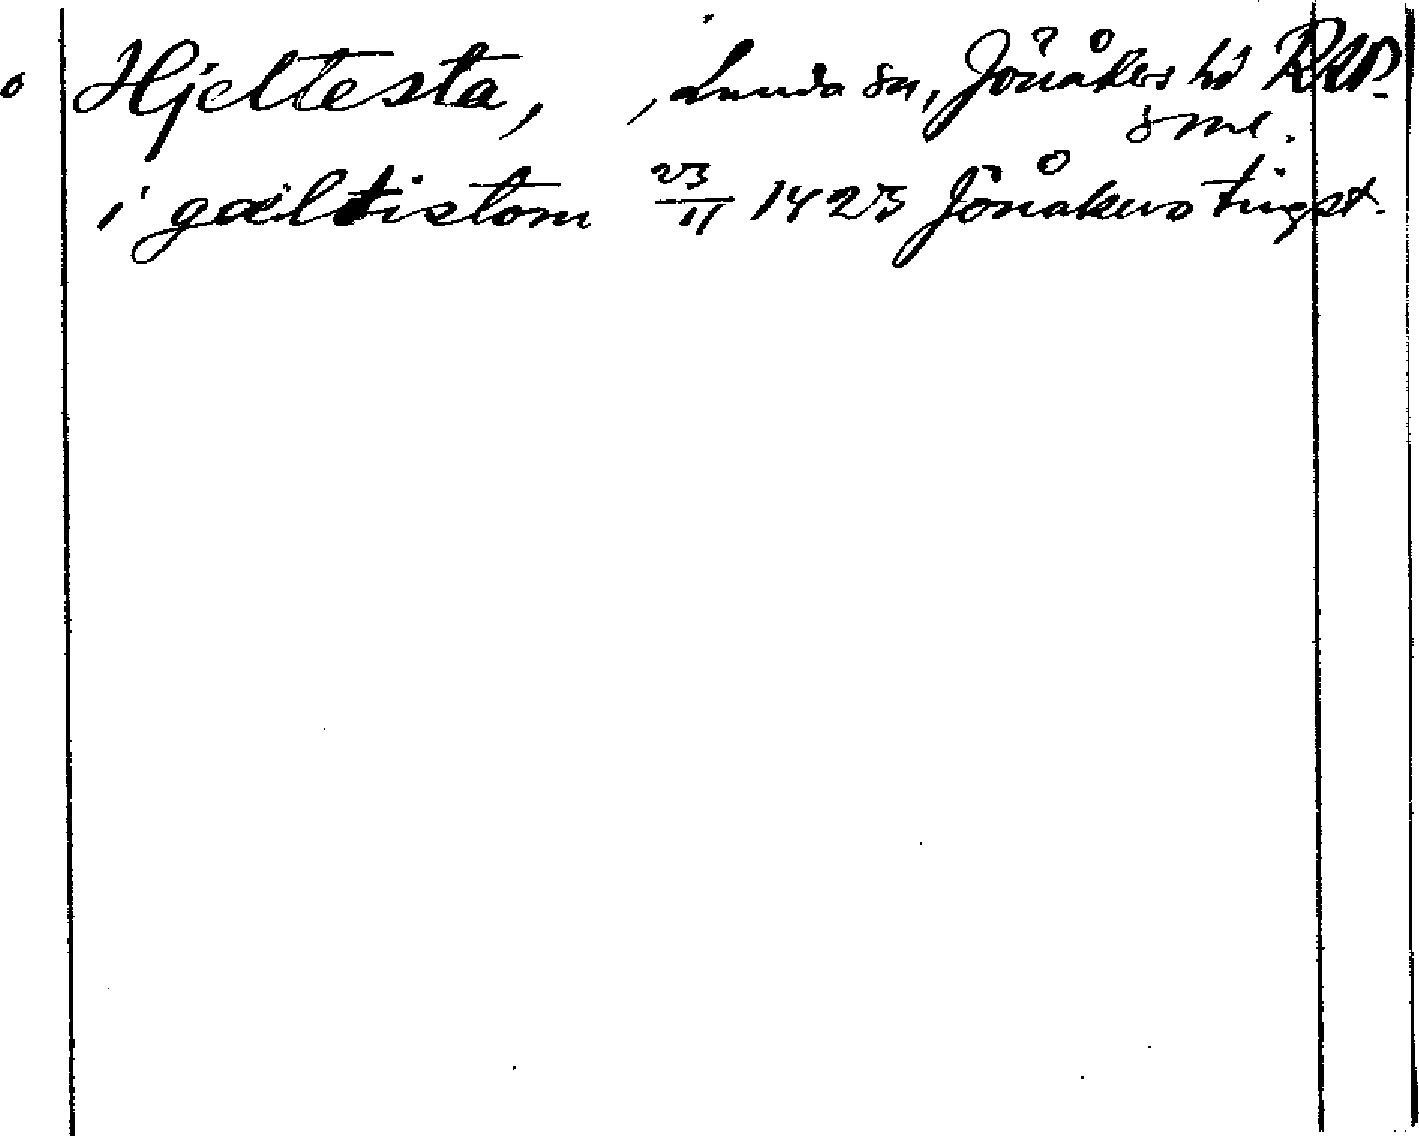 Hjeltesta, , Lunda sn, Jönåkers hd RAP.
Sml.
i gæltistom 23/11 1423 Jönåkers tingst.